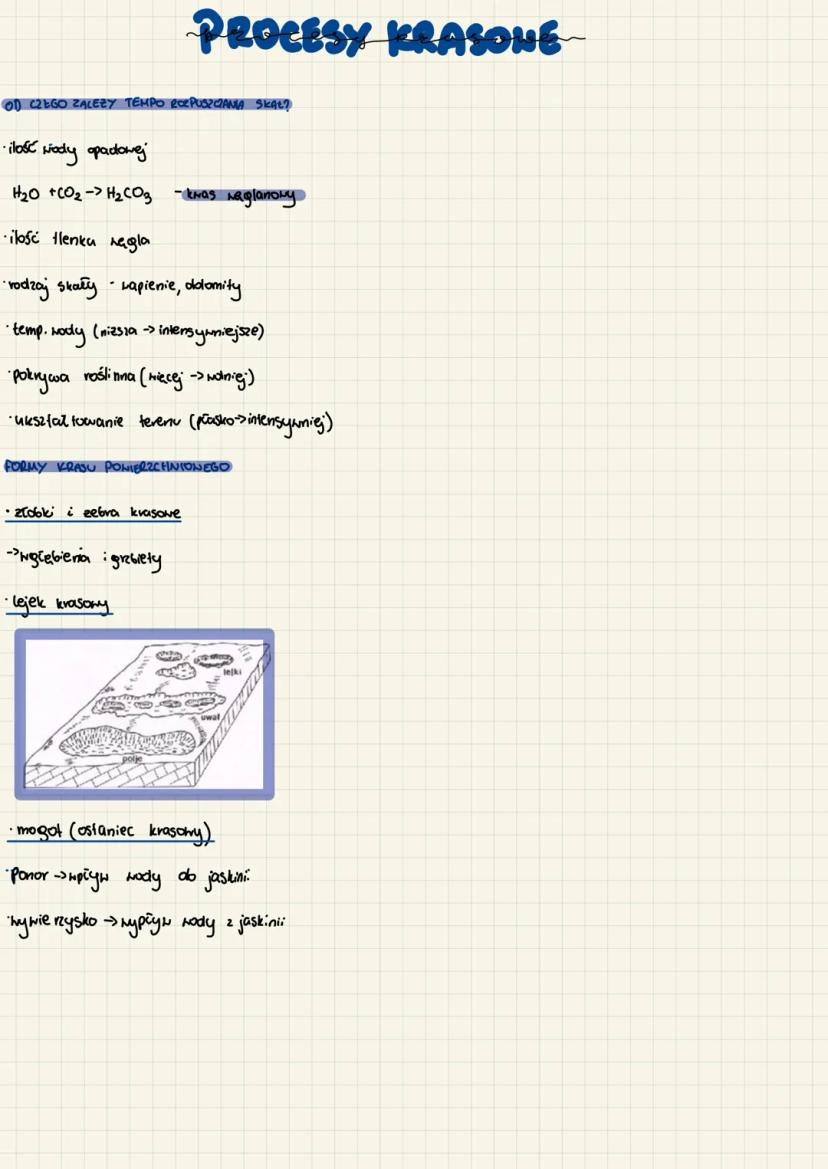 PROCESY KRASOWE
procesy krasowe
OD CZEGO ZALEŻY TEMPO ROZPUSZCZANIA SKAŁ?
·ilość wody opadowej
H₂O +CO₂ -> H₂CO₃ - kwas węglanowy
·ilość tlenku węgla
·rodzaj skały - wapienie, dolomity
·temp. wody (niższa -> intensywniejsze)
·pokrywa roślinna (więcej -> wolniej)
·ukształtowanie terenu (płasko->intensywniej)
FORMY KRASU POWIERZCHNIOWEGO
·żłobki i żebra krasowe
->wgłębienia i grzbiety
·lejek krasowy
lejki
uwał
polje
·mogot (ostaniec krasowy)
·Ponor -> wpływ wody do jaskini
·wywierzysko -> wypływ wody z jaskinii